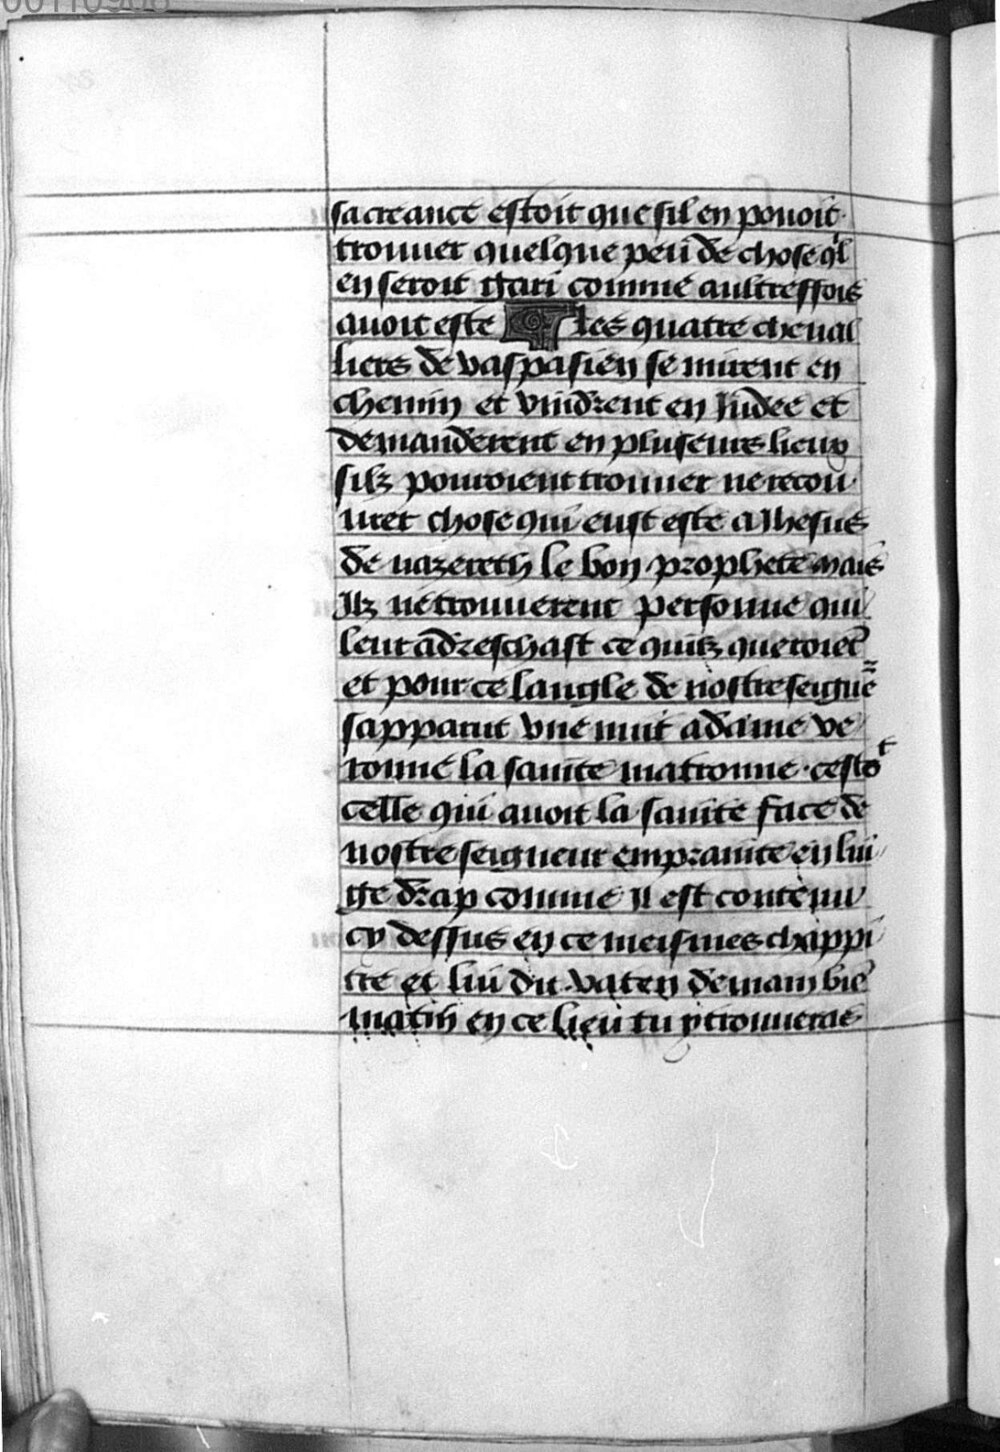 00110908
sa creance estoit que sil en pouoit
trouuer quelque peu de chose ql
en seroit gari comme aultreffois
auoit este les quatre cheual
liers de vaspasien se mirent en
chemin et vindrent en Iudee et
demanderent en pluseurs lieux
silz pourroient trouuer ne recou
urer chose qui eust este a Ihesus
de nazereth le bon prophete mais
Ilz ne trouuerent personne qui
leur adreschast ce quilz queroiet
et pour ce langle de nostre seigne
sapparut vne nuit a dame ve
ronne la sainte matronne · cestot
celle qui auoit la sainte face de
nostre seigneur emprainte en lin
ge drap comme Il est contenu
cy dessus en ce meismes chappi
tre et lui dit · va ten demain bie
matin en ce lieu tu y trouueras